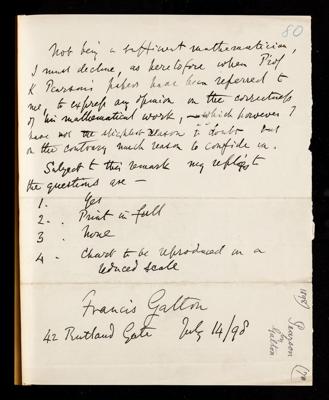 80
Not being a sufficient mathematician,
I must decline, as heretofore when Prof
K Pearson's papers have been referred to
me, to express any opinion on the correctness
of his mathematical work, – which however I
have not the slightest reason to doubt but
on the contrary much reason to confide in.
Subject to this remark my replies to
the questions are —
1. Yes
2. Print in full
3. None
4. Chart to be reproduced on a
reduced scale
Francis Galton
42 Rutland Gate July 14/98
1898
Pearson
by
Galton